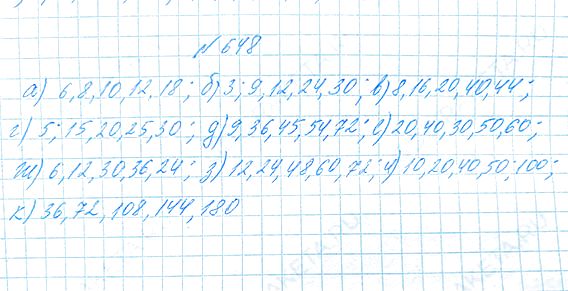 №648
а) 6,8,10,12,18; б) 3; 9, 12, 24, 30; в) 8, 16, 20, 40, 44;
г) 5; 15, 20, 25, 30; д) 9, 36, 45, 54, 72; е) 20, 40, 30, 50, 60;
ж) 6, 12, 30, 36, 24; з) 12, 24, 48, 60, 72; и) 10, 20, 40, 50, 100;
к) 36, 72, 108, 144, 180